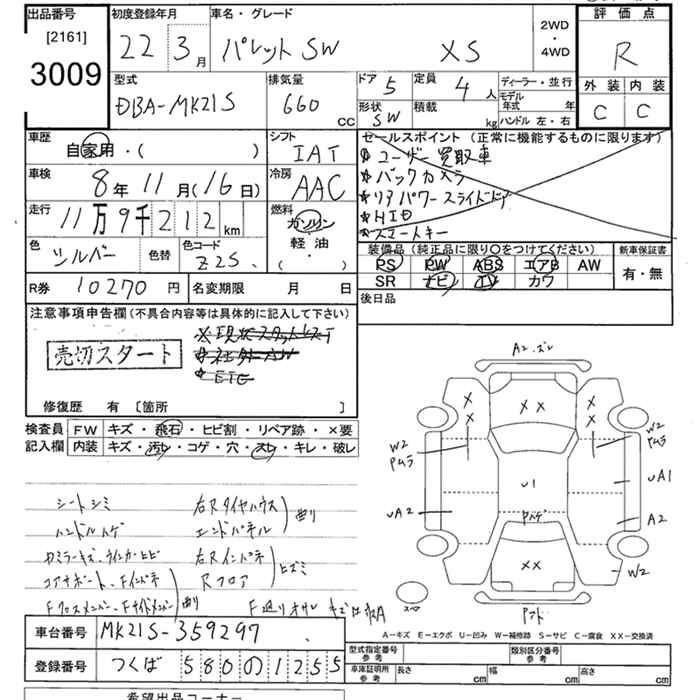 出品番号 初度登録年月 車名・グレード 2WD ・ 4WD 評価点
[2161]
3009 22 3月 パレットSW XS R
型式 排気量 ドア 5 定員 4人 ディーラー・並行 外装 内装
モデル年式 年
DBA-MK21S 660 CC 形状 SW 積載 kg ハンドル 左・右 C C
車歴 シフト セールスポイント (正常に機能するものに限ります)
自家用・( ) IAT ユーザー買取車
車検 冷房 バックカメラ
8年11月(16日) AAC リアパワースライドドア
走行 燃料 HID
11万9千212km ガソリン スマートキー
軽油
・( )
色 シルバー 色替 色コード Z2S
装備品 (純正品に限り○をつけてください) 新車保証書
PS PW ABS エアB AW 有・無
SR ナビ TV カワ
R券 10270円 名変期限 月 日
後日品
注意事項申告欄(不具合内容等は具体的に記入して下さい)
売切スタート
ETC
修復歴 有 [箇所 ]
検査員記入欄 FW キズ・飛石・ヒビ割・リペア跡・×要
内装 キズ・汚レ・コゲ・穴・スレ・キレ・破レ
シートシミ 右Rタイヤハウス
ハンドルハゲ エンドパネル 曲り
カミラーキズ、ウインカーヒビ 右Rインパネ
コアサポート、Fインパネ Rフロア ヒズミ
Fクロスメンバー、Fサイドメンバー 曲り
A2
× ×
× × × ×
W2 W2
U1
UA1
UA2 A2
××
W2
車台番号 MK21S-359297
登録番号 つくば 580 の 1255
A-キズ E-エクボ U-凹み W-補修跡 S-サビ C-腐食 XX-交換済
型式指定番号 参考 類別区分番号 参考
車庫証明所 参考 長さ cm 幅 cm 高さ cm
希望出品コーナー